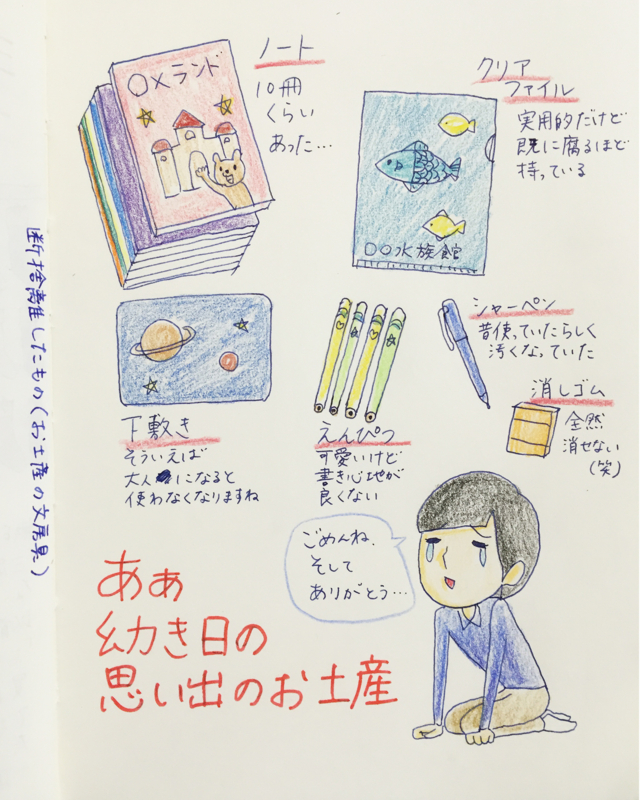 断捨離したもの(お土産の文房具)
○×ランド
ノート
10冊
くらい
あった…
クリア
ファイル
実用的だけど
既に腐るほど
持っている
○○水族館
下敷き
そういえば
大人になると
使わなくなりますね
えんぴつ
可愛いけど
書き心地が
良くない
シャーペン
昔使っていたらしく
汚くなっていた
消しゴム
全然
消せない
(笑)
ごめんね、
そして
ありがとう…
あぁ
幼き日の
思い出のお土産